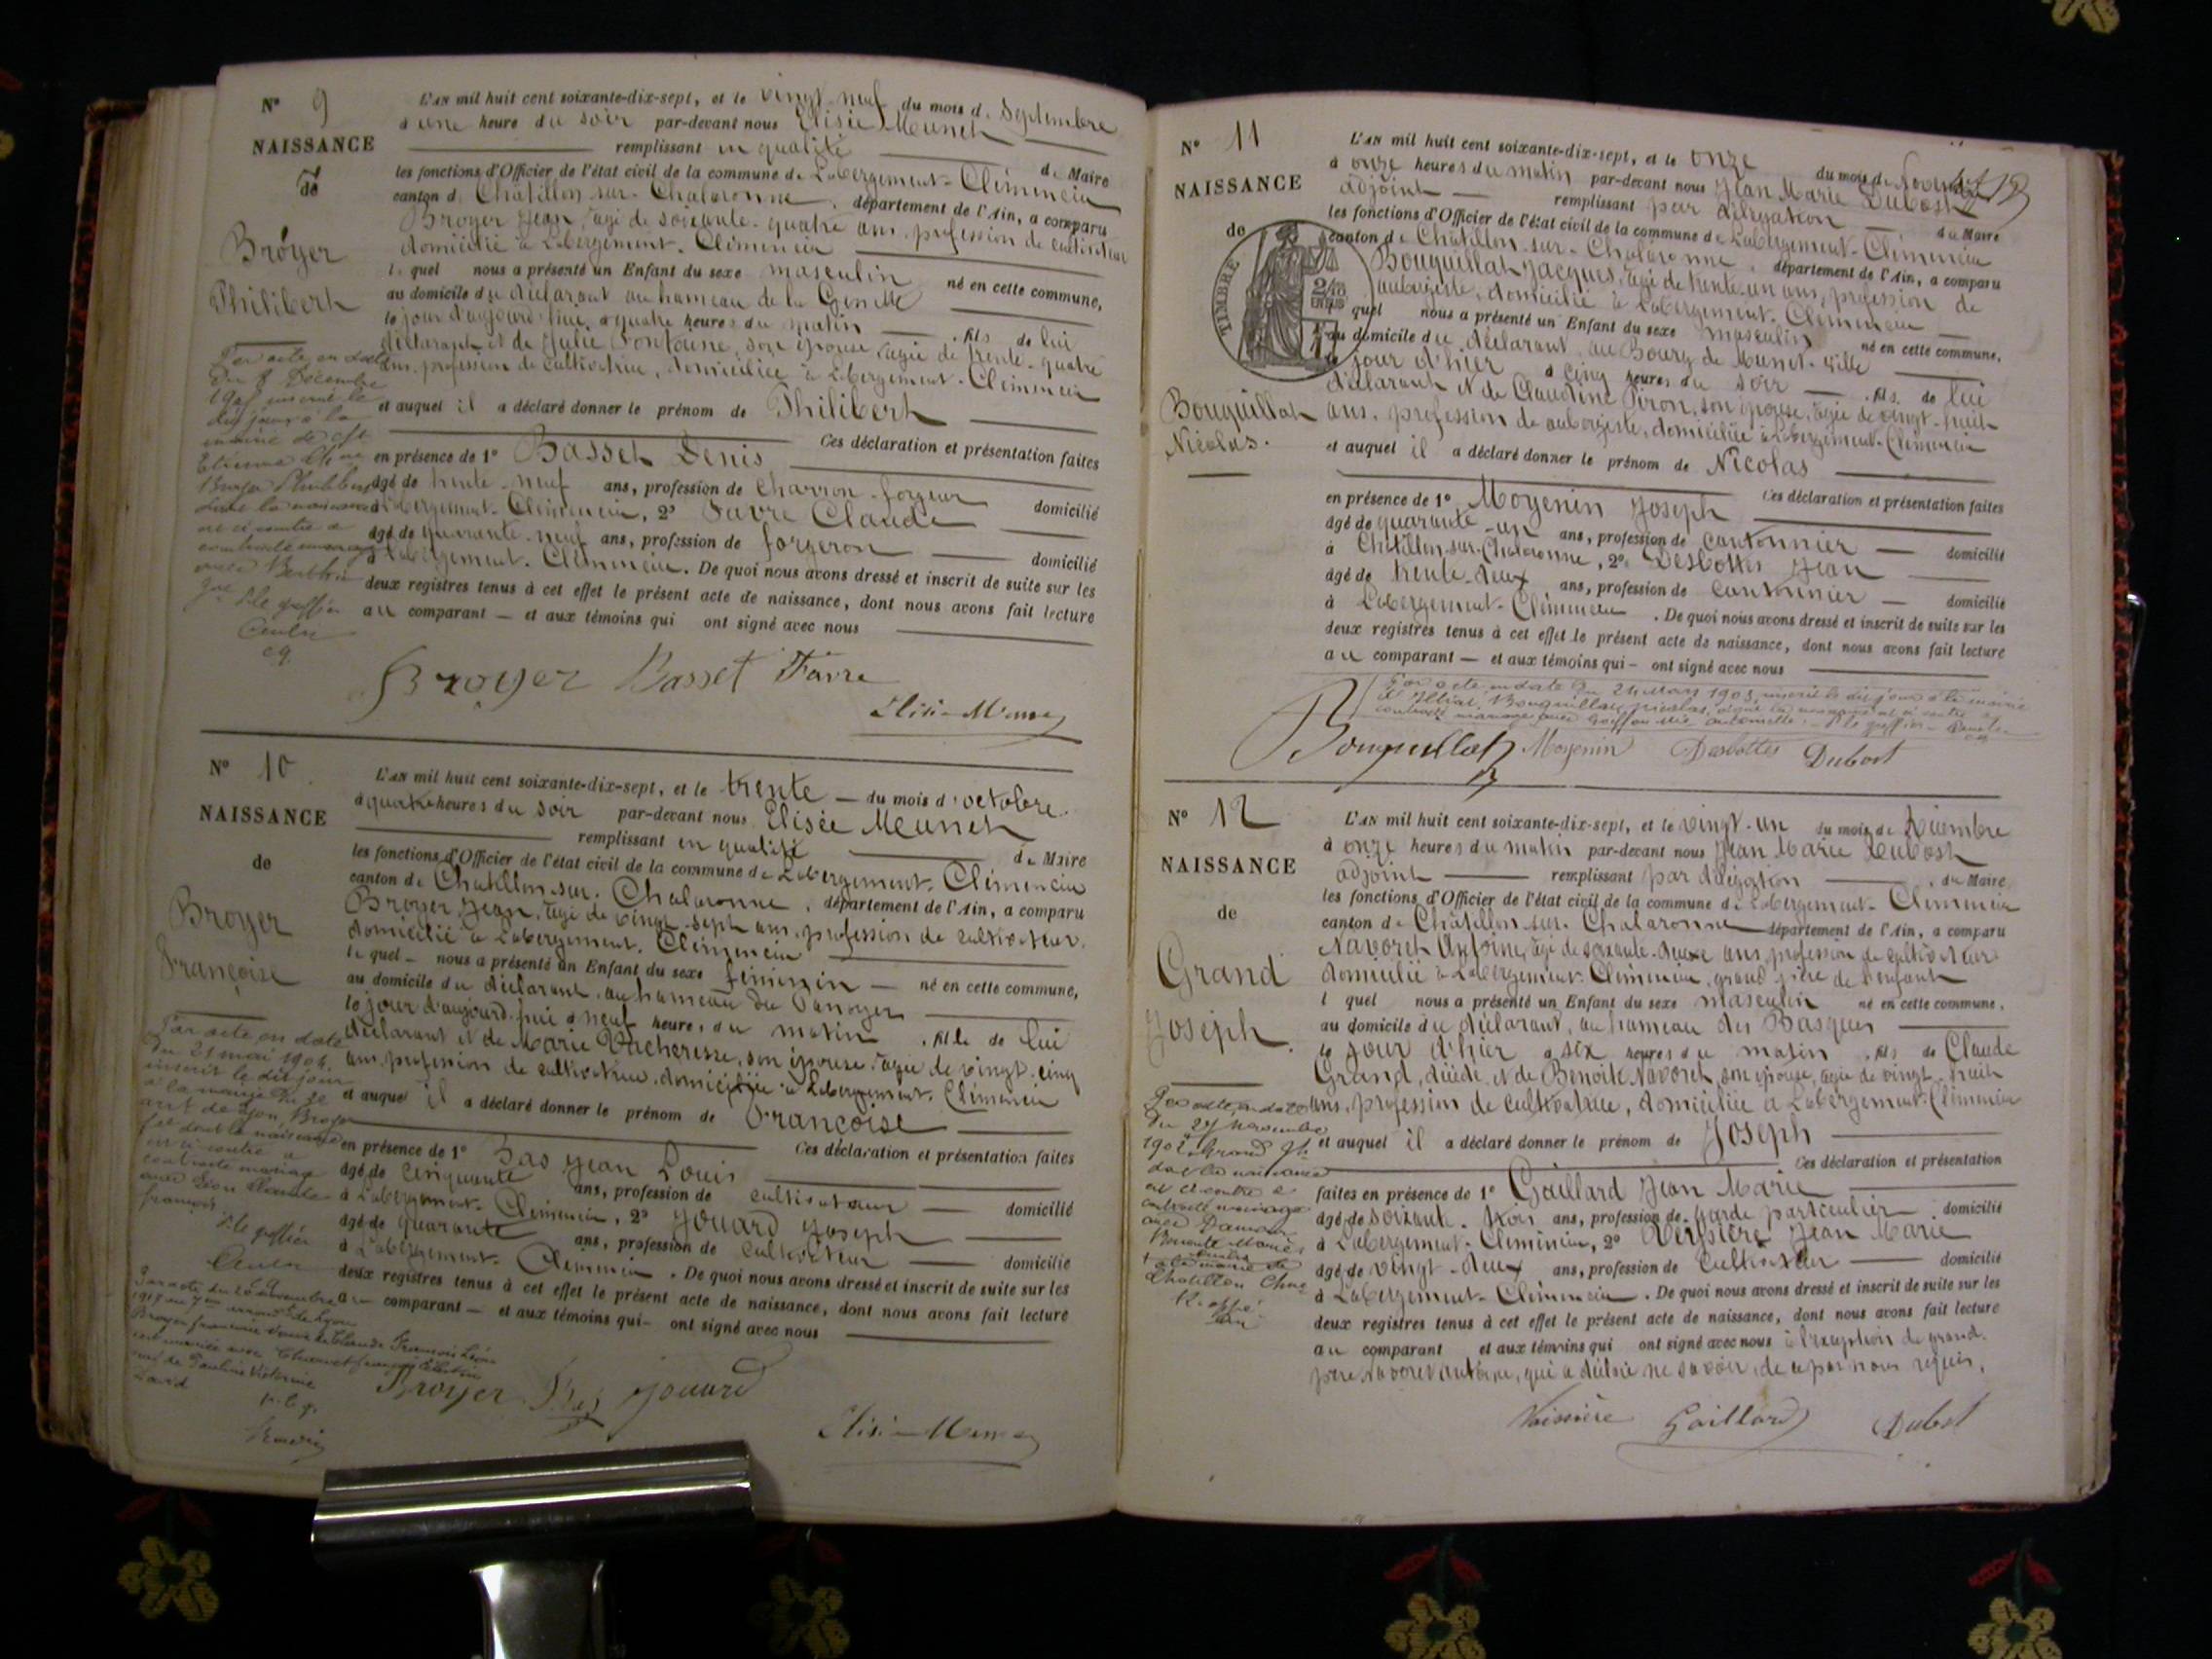 N° 9
NAISSANCE
de
Broyer
Philibert
L'AN mil huit cent soixante-dix-sept, et le vingt-neuf du mois d. Septembre
à une heure du soir par-devant nous Elisée Meunet
remplissant en qualité de Maire
les fonctions d'Officier de l'état civil de la commune de L'abergement-Clémencia
canton de Châtillon-sur-Chalaronne, département de l'Ain, a comparu
Broyer Jean, âgé de soixante-quatre ans, profession de cultivateur
domicilié à L'abergement-Clémencia
lequel nous a présenté un Enfant du sexe masculin né en cette commune,
au domicile du déclarant au hameau de la
le jour d'aujourd'hui, à quatre heures du matin, fils de lui
déclarant et de Julie Fontaine, son épouse, âgée de trente-quatre
ans, profession de cultivatrice, domiciliée à L'abergement-Clémencia
et auquel il a déclaré donner le prénom de Philibert
Ces déclaration et présentation faites
en présence de 1° Basset Denis
âgé de trente-neuf ans, profession de charron-forgeur domicilié
à L'abergement-Clémencia, 2° Favre Claude
âgé de quarante-neuf ans, profession de forgeron domicilié
à L'abergement-Clémencia. De quoi nous avons dressé et inscrit de suite sur les
deux registres tenus à cet effet le présent acte de naissance, dont nous avons fait lecture
au comparant et aux témoins qui ont signé avec nous
Par acte en date
du 8 Décembre
inscrit le
dit jour à la
mairie de
Etienne
Broyer Philibert
dont la naissance
est ci contre a
contracté mariage
avec
P. le greffier
Broyer Basset Favre
N° 10
NAISSANCE
de
Broyer
Françoise
L'AN mil huit cent soixante-dix-sept, et le trente du mois d'octobre
à quatre heures du soir par-devant nous Elisée Meunet
remplissant en qualité de Maire
les fonctions d'Officier de l'état civil de la commune de L'abergement-Clémencia
canton de Châtillon-sur-Chalaronne, département de l'Ain, a comparu
Broyer Jean, âgé de vingt-sept ans, profession de cultivateur
domicilié à L'abergement-Clémencia
lequel nous a présenté un Enfant du sexe féminin né en cette commune,
au domicile du déclarant, au hameau du
le jour d'aujourd'hui à neuf heures du matin, fille de lui
déclarant et de Marie Vacheresse, son épouse, âgée de vingt-cinq
ans, profession de cultivatrice, domiciliée à L'abergement-Clémencia
et auquel il a déclaré donner le prénom de Françoise
Ces déclaration et présentation faites
en présence de 1° Pas Jean Louis
âgé de cinquante ans, profession de cultivateur domicilié
à L'abergement-Clémencia, 2° Jouard Joseph
âgé de quarante ans, profession de cultivateur domicilié
à L'abergement-Clémencia. De quoi nous avons dressé et inscrit de suite sur les
deux registres tenus à cet effet le présent acte de naissance, dont nous avons fait lecture
au comparant et aux témoins qui ont signé avec nous
Par acte en date
du 21 mai 1904
inscrit le dit jour
à la mairie du
arrt de Lyon, Broyer
dont la naissance
est ci contre a
contracté mariage
avec Claude
françois
P. le greffier
Par acte du 26 novembre
1917 au 7me arrondt de Lyon
Broyer françoise veuve de Claude François
est mariée avec
de Pauline Victorine
David
Broyer Pas Jouard
N° 11
NAISSANCE
de
TIMBRE
Bouquillat
Nicolas.
L'AN mil huit cent soixante-dix-sept, et le onze du mois de Novembre
à onze heures du matin par-devant nous Jean Marie Dubost
adjoint remplissant par délégation du Maire
les fonctions d'Officier de l'état civil de la commune de L'abergement-Clémencia
canton de Châtillon-sur-Chalaronne, département de l'Ain, a comparu
Bouquillat Jacques, âgé de trente-un ans, profession de
aubergiste, domicilié à L'abergement-Clémencia
quel nous a présenté un Enfant du sexe masculin né en cette commune,
au domicile du déclarant, au Bourg de Munet-ville
le jour d'hier à cinq heures du soir, fils de lui
déclarant et de Claudine Piron, son épouse, âgée de vingt-huit
ans, profession de aubergiste, domiciliée à L'abergement-Clémencia
et auquel il a déclaré donner le prénom de Nicolas
Ces déclaration et présentation faites
en présence de 1° Moyenin Joseph
âgé de quarante-un ans, profession de cantonnier domicilié
à Châtillon-sur-Chalaronne, 2° Desbottes Jean
âgé de trente-deux ans, profession de cantonnier domicilié
à L'abergement-Clémencia. De quoi nous avons dressé et inscrit de suite sur les
deux registres tenus à cet effet le présent acte de naissance, dont nous avons fait lecture
au comparant et aux témoins qui ont signé avec nous
Par acte en date du 24 Mars 1903, inscrit le dit jour à la mairie
d'Illiat, Bouquillat Nicolas, dont la naissance est ci contre a
contracté mariage avec Goiffon Antoinette. P. le greffier
Bouquillat Moyenin Desbottes Dubost
N° 12
NAISSANCE
de
Grand
Joseph.
L'AN mil huit cent soixante-dix-sept, et le vingt-un du mois de Décembre
à onze heures du matin par-devant nous Jean Marie Dubost
adjoint remplissant par délégation du Maire
les fonctions d'Officier de l'état civil de la commune de L'abergement-Clémencia
canton de Châtillon-sur-Chalaronne département de l'Ain, a comparu
Navoret Antoine, âgé de soixante-deux ans, profession de cultivateur
domicilié à L'abergement-Clémencia, grand père de l'enfant
lequel nous a présenté un Enfant du sexe masculin né en cette commune,
au domicile du déclarant, au hameau des Basques
le jour d'hier à six heures du matin, fils de Claude
Grand, décédé, et de Benoîte Navoret, son épouse, âgée de vingt-huit
ans, profession de cultivatrice, domiciliée à L'abergement-Clémencia
et auquel il a déclaré donner le prénom de Joseph
Ces déclaration et présentation
faites en présence de 1° Gaillard Jean Marie
âgé de soixante-trois ans, profession de garde particulier domicilié
à L'abergement-Clémencia, 2° Veissière Jean Marie
âgé de vingt-deux ans, profession de cultivateur domicilié
à L'abergement-Clémencia. De quoi nous avons dressé et inscrit de suite sur les
deux registres tenus à cet effet le présent acte de naissance, dont nous avons fait lecture
au comparant et aux témoins qui ont signé avec nous à l'exception de grand-
père Navoret Antoine, qui a déclaré ne savoir, de ce par nous requis.
Par acte en date
du 27 Novembre
1902 Grand Jh
dont la naissance
est ci contre a
contracté mariage
avec
à la mairie de
Châtillon
Gaillard Dubost